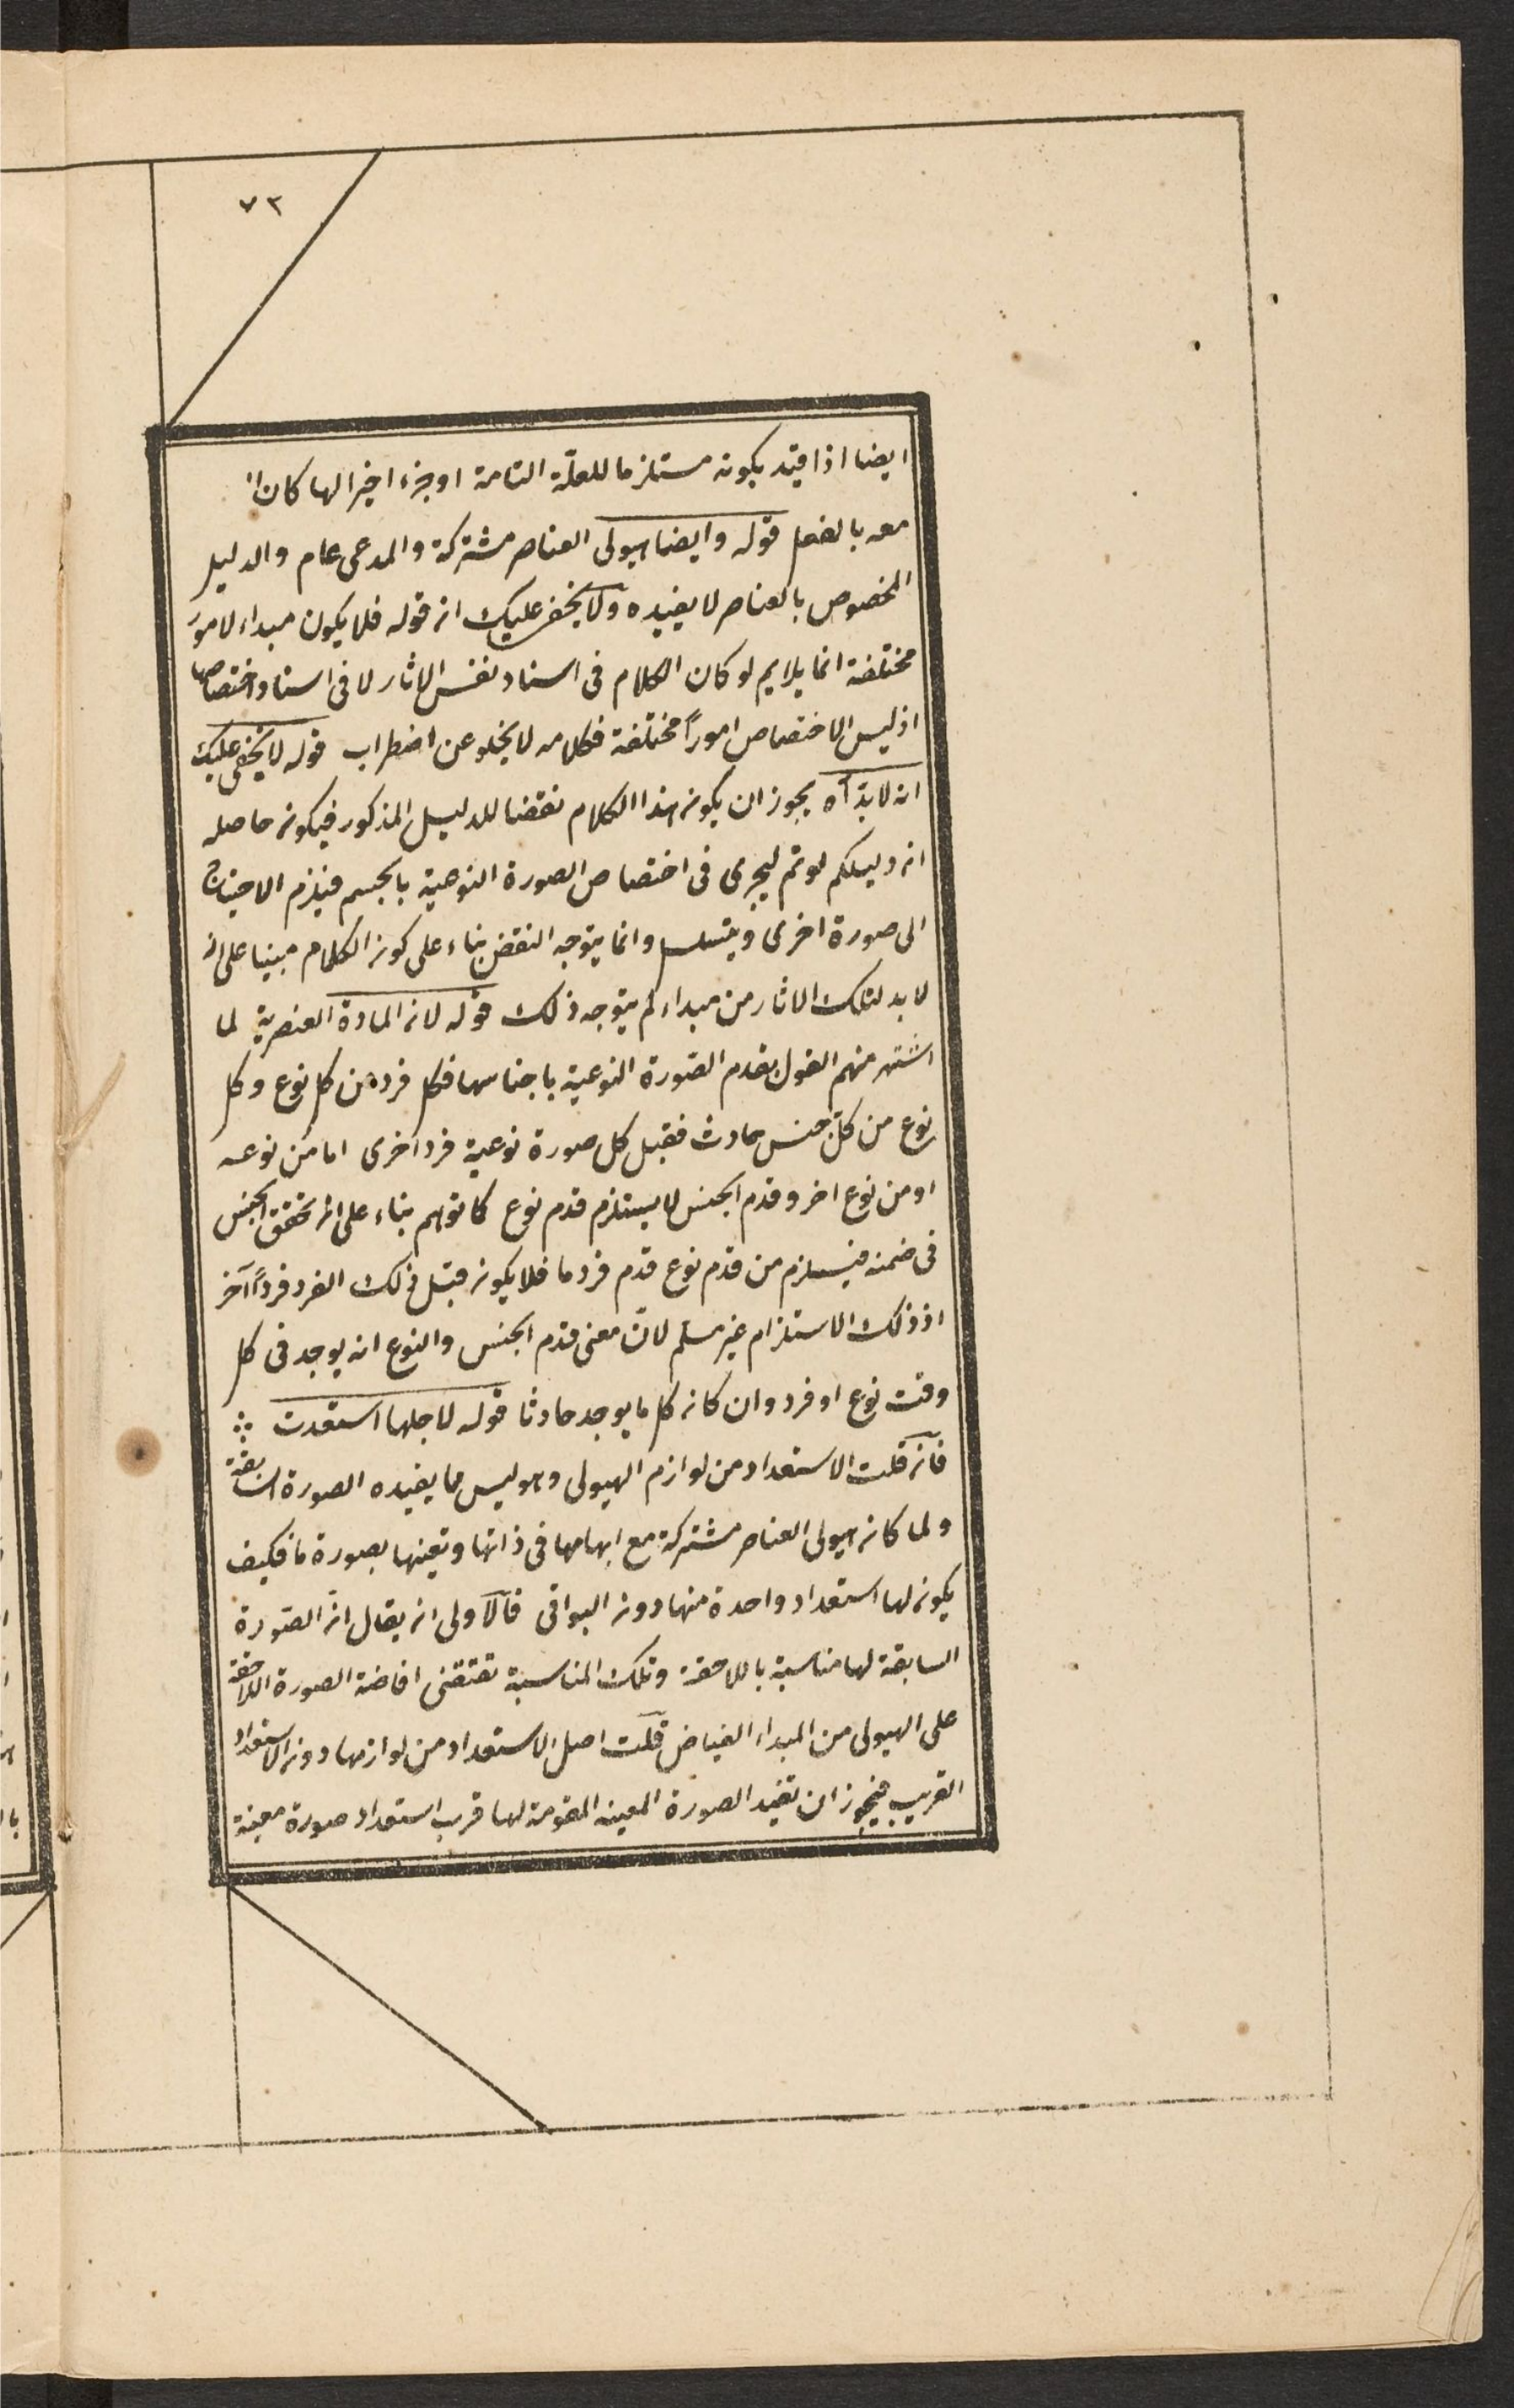 ٧٢
ايضا اذا قيد بكونه مستلزما للعلّة التامة او جزء اخيرا لها كان
معه بالفعل قوله وايضا هيولى العناصر مشتركة والمدعى عام والدليل
المخصوص بالعناصر لا يفيده ولا يخفى عليك ان قوله فلا يكون مبداء لامور
مختلفة انما يلايم لو كان الكلام فى اسناد نفس الاثار لا فى اسناد اختصاصها
اذ ليس الاختصاص اموراً مختلفة فكلامه لا يخلو عن اضطراب قوله لا يخفى عليك
انه لا بدّ آه يجوز ان يكون هذا الكلام نقضا للدليل المذكور فيكون حاصله
ان دليلكم لو تم ليجرى فى اختصاص الصورة النوعية بالجسم فيلزم الاحتياج
الى صورة اخرى ويتسلسل وانما يتوجه النقض بناء على كون الكلام مبنيا على ان
لا بد لتلك الاثار من مبداء لم يتوجه ذلك قوله لان المادة العنصرية لما
اشتهر منهم القول بقدم الصّورة النوعية باجناسها فكل فرد من كل نوع وكل
نوع من كلّ جنس حادث فقبل كل صورة نوعية فرد اخرى اما من نوعه
او من نوع اخر وقدم الجنس لا يستلزم قدم نوع كما توهم بناء على ان تحقق الجنس
فى ضمنه فيلزم من قدم نوع قدم فرد ما فلا يكون قبل ذلك الفرد فرداً آخر
اذ ذلك الاستلزام غير مسلم لانّ معنى قدم الجنس والنوع انه يوجد فى كل
وقت نوع او فرد وان كان كل ما يوجد حادثا قوله لاجلها استعدت
فان قلت الاستعداد من لوازم الهيولى وهو ليس مما يفيده الصورة السابقة
ولما كان هيولى العناصر مشتركة مع ابهامها فى ذاتها وتعينها بصورة ما فكيف
يكون لها استعداد واحدة منها دون البواقى فالاولى ان يقال انّ الصّورة
السابقة لها مناسبة باللاحقة وتلك المناسبة تقتضى افاضة الصورة اللاحقة
على الهيولى من المبداء الفياض قلت اصل الاستعداد من لوازمها دون الاستعداد
القريب فيجوز ان تفيد الصورة المعينه المقومة لها قرب استعداد صورة معينة